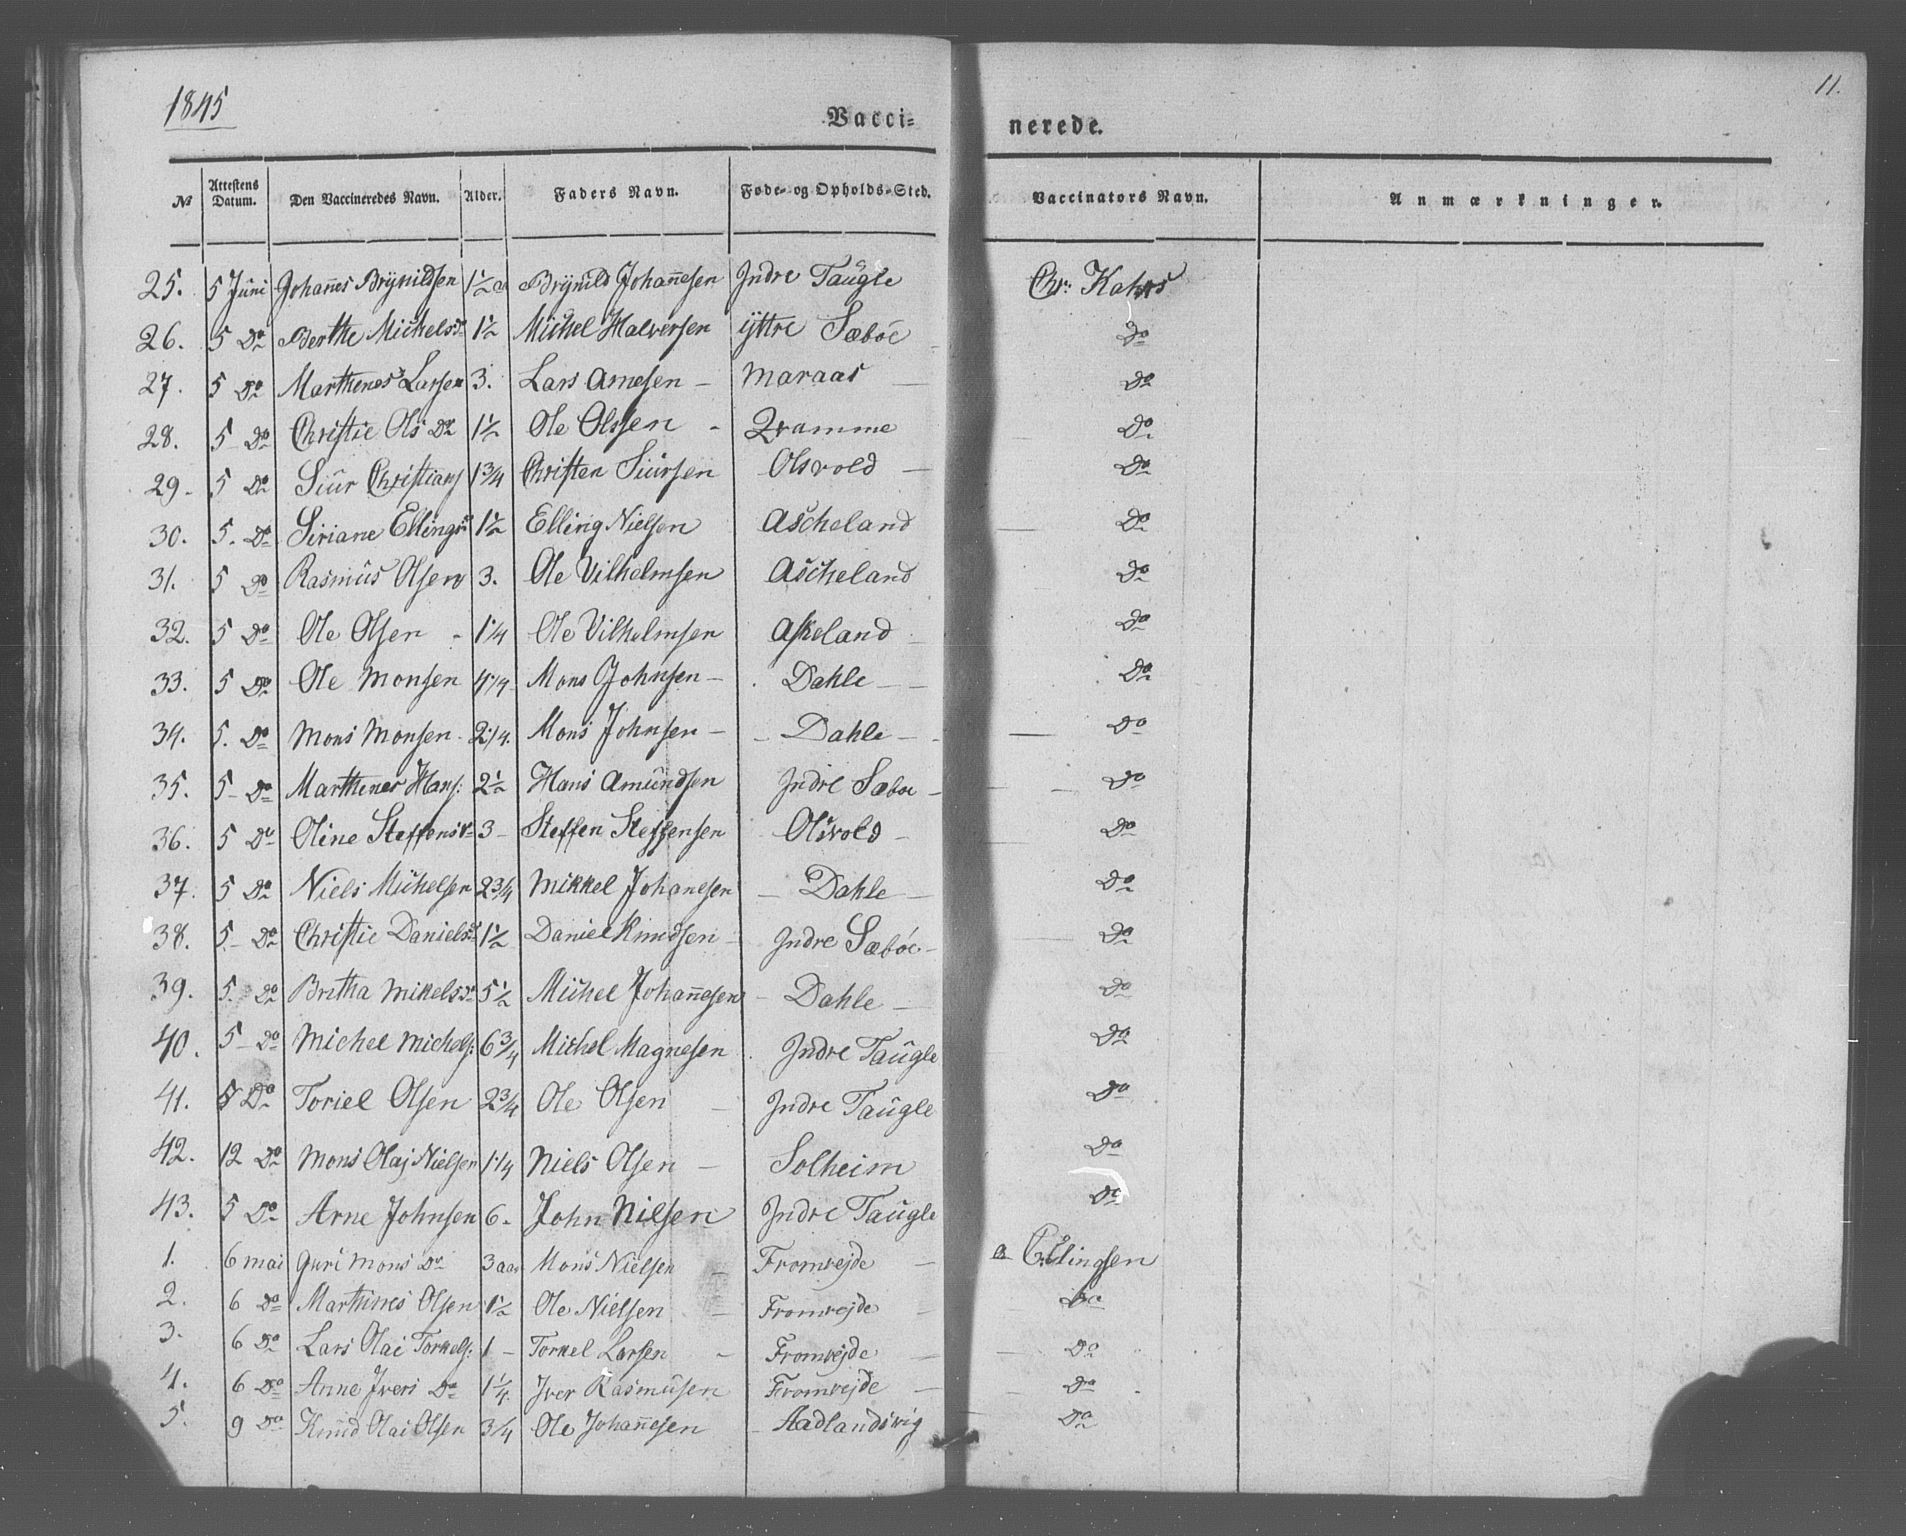 1845
11.
Vacci- nerede.
No Attestens Datum. Den Vaccineredes Navn. Alder. Faders Navn. Føde- og Opholds-Sted. Vaccinators Navn. Anmærkninger.
25. 5 Juni Johan̄es Brÿnildsen 1½ a Brÿnild Johan̄esen Indre Taugle Chr: Kahrs
26. 5 Do Berthe Michelsdr 1½ Michel Halversen ÿttre Sæbøe Do
27. 5 Do Marthenes Larsen 3. Lars Arnesen – Maraas – Do
28. 5 Do Christie Ols Dr 1½ Ole Olssen - Qvamme Do
29. 5 Do Siur Christians 1¾ Christen Siursen Olsvold – Do
30. 5. Do Siriane Ellingsd 1½ Elling Nielsen Ascheland Do
31. 5 Do Rasmus Olsen 3. Ole Vilhelmsen Ascheland Do
32. 5 Do Ole Olsen - 1¼ Ole Vilhelmsen Askeland Do
33. 5 Do Ole Monsen 4¼ Mons Johnsen – Dahle – Do
34. 5. Do Mons Monsen 2¼. Mons Johnsen – Dahle – Do
35. 5 Do Marthenes Hans: 2½ Hans Amundsen Indre Sæboe – Do
36. 5 Do Oline Steffensdr 3 – Steffen Steffensen Olsvold – Do
37. 5 Do Niels Michelsen 2¾ Mikkel Johanesen – Dahle – Do
38. 5. Do Christie Danielsd 1½ Daniel Knudsen – Indre Sæbøe – Do
39. 5. Do Britha Mikelsdr 5½ Michel Johan̄esen – Dahle – Do
40. 5 Do Michel Michels: 6¾ Michel Magnesen Indre Taugle Do
41. 5 Do Toriel Olsen 2¾ Ole Olsen – Indre Taugle Do
42. 12 Do Mons Olaj Nielsen 1¼ Niels Olsen – Solheim Do
43. 5 Do Arne Johnsen 6. John Nilsen Indre Taugle Do
1. 6 mai Guri Mons Dr 3 aar Mons Nielsen – Fromrejde – Ellingsen
2. 6 Do Marthines Olsen 1½ Ole Nielsen – Fromrejde – Do
3. 6 Do Lars Olai Torkels: 1 – Torkel Larsen – Fromrejde – Do
4. 6 Do Anne Ivers Dr 1¼. Iver Rasmusen Fromrejde – Do
5. 9 Do Knud Olai Olsen ¾ Ole Johan̄esen – Aadlandsvig Do